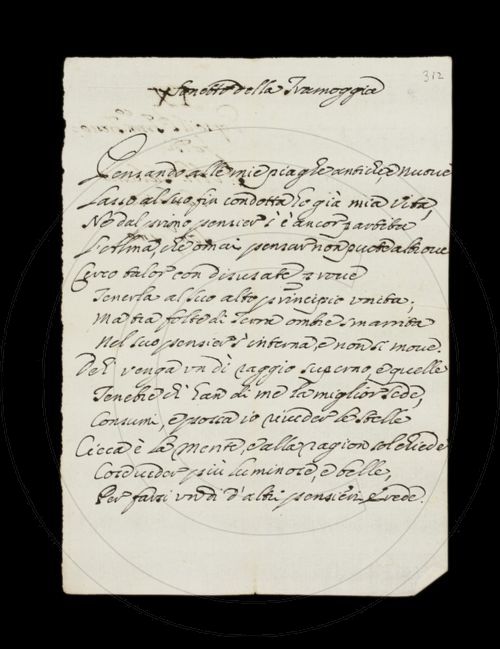 312
Sonetto della Tramoggia
Pensando alle mie piaghe antiche, e nuove
Lasso al suo fin condotta ho già mia vita,
Ne dal primo pensier s'è ancor partita
L'alma, che omai pensar non puote altrove
Cerco talor con disusate prove
Tenerla al suo alto principio unita;
Ma tra folte di Terra ombre smarrita
Nel suo pensier s'interna, e non si move.
Deh venga un dì raggio superno, e quelle
Tenebre ch'han di me la miglior sede,
Consumi, e possa io riveder le stelle
Cieca è la mente, e alla ragion sol chiede
Cose veder più luminose, e belle,
Per farsi un dì d'altri pensieri erede.